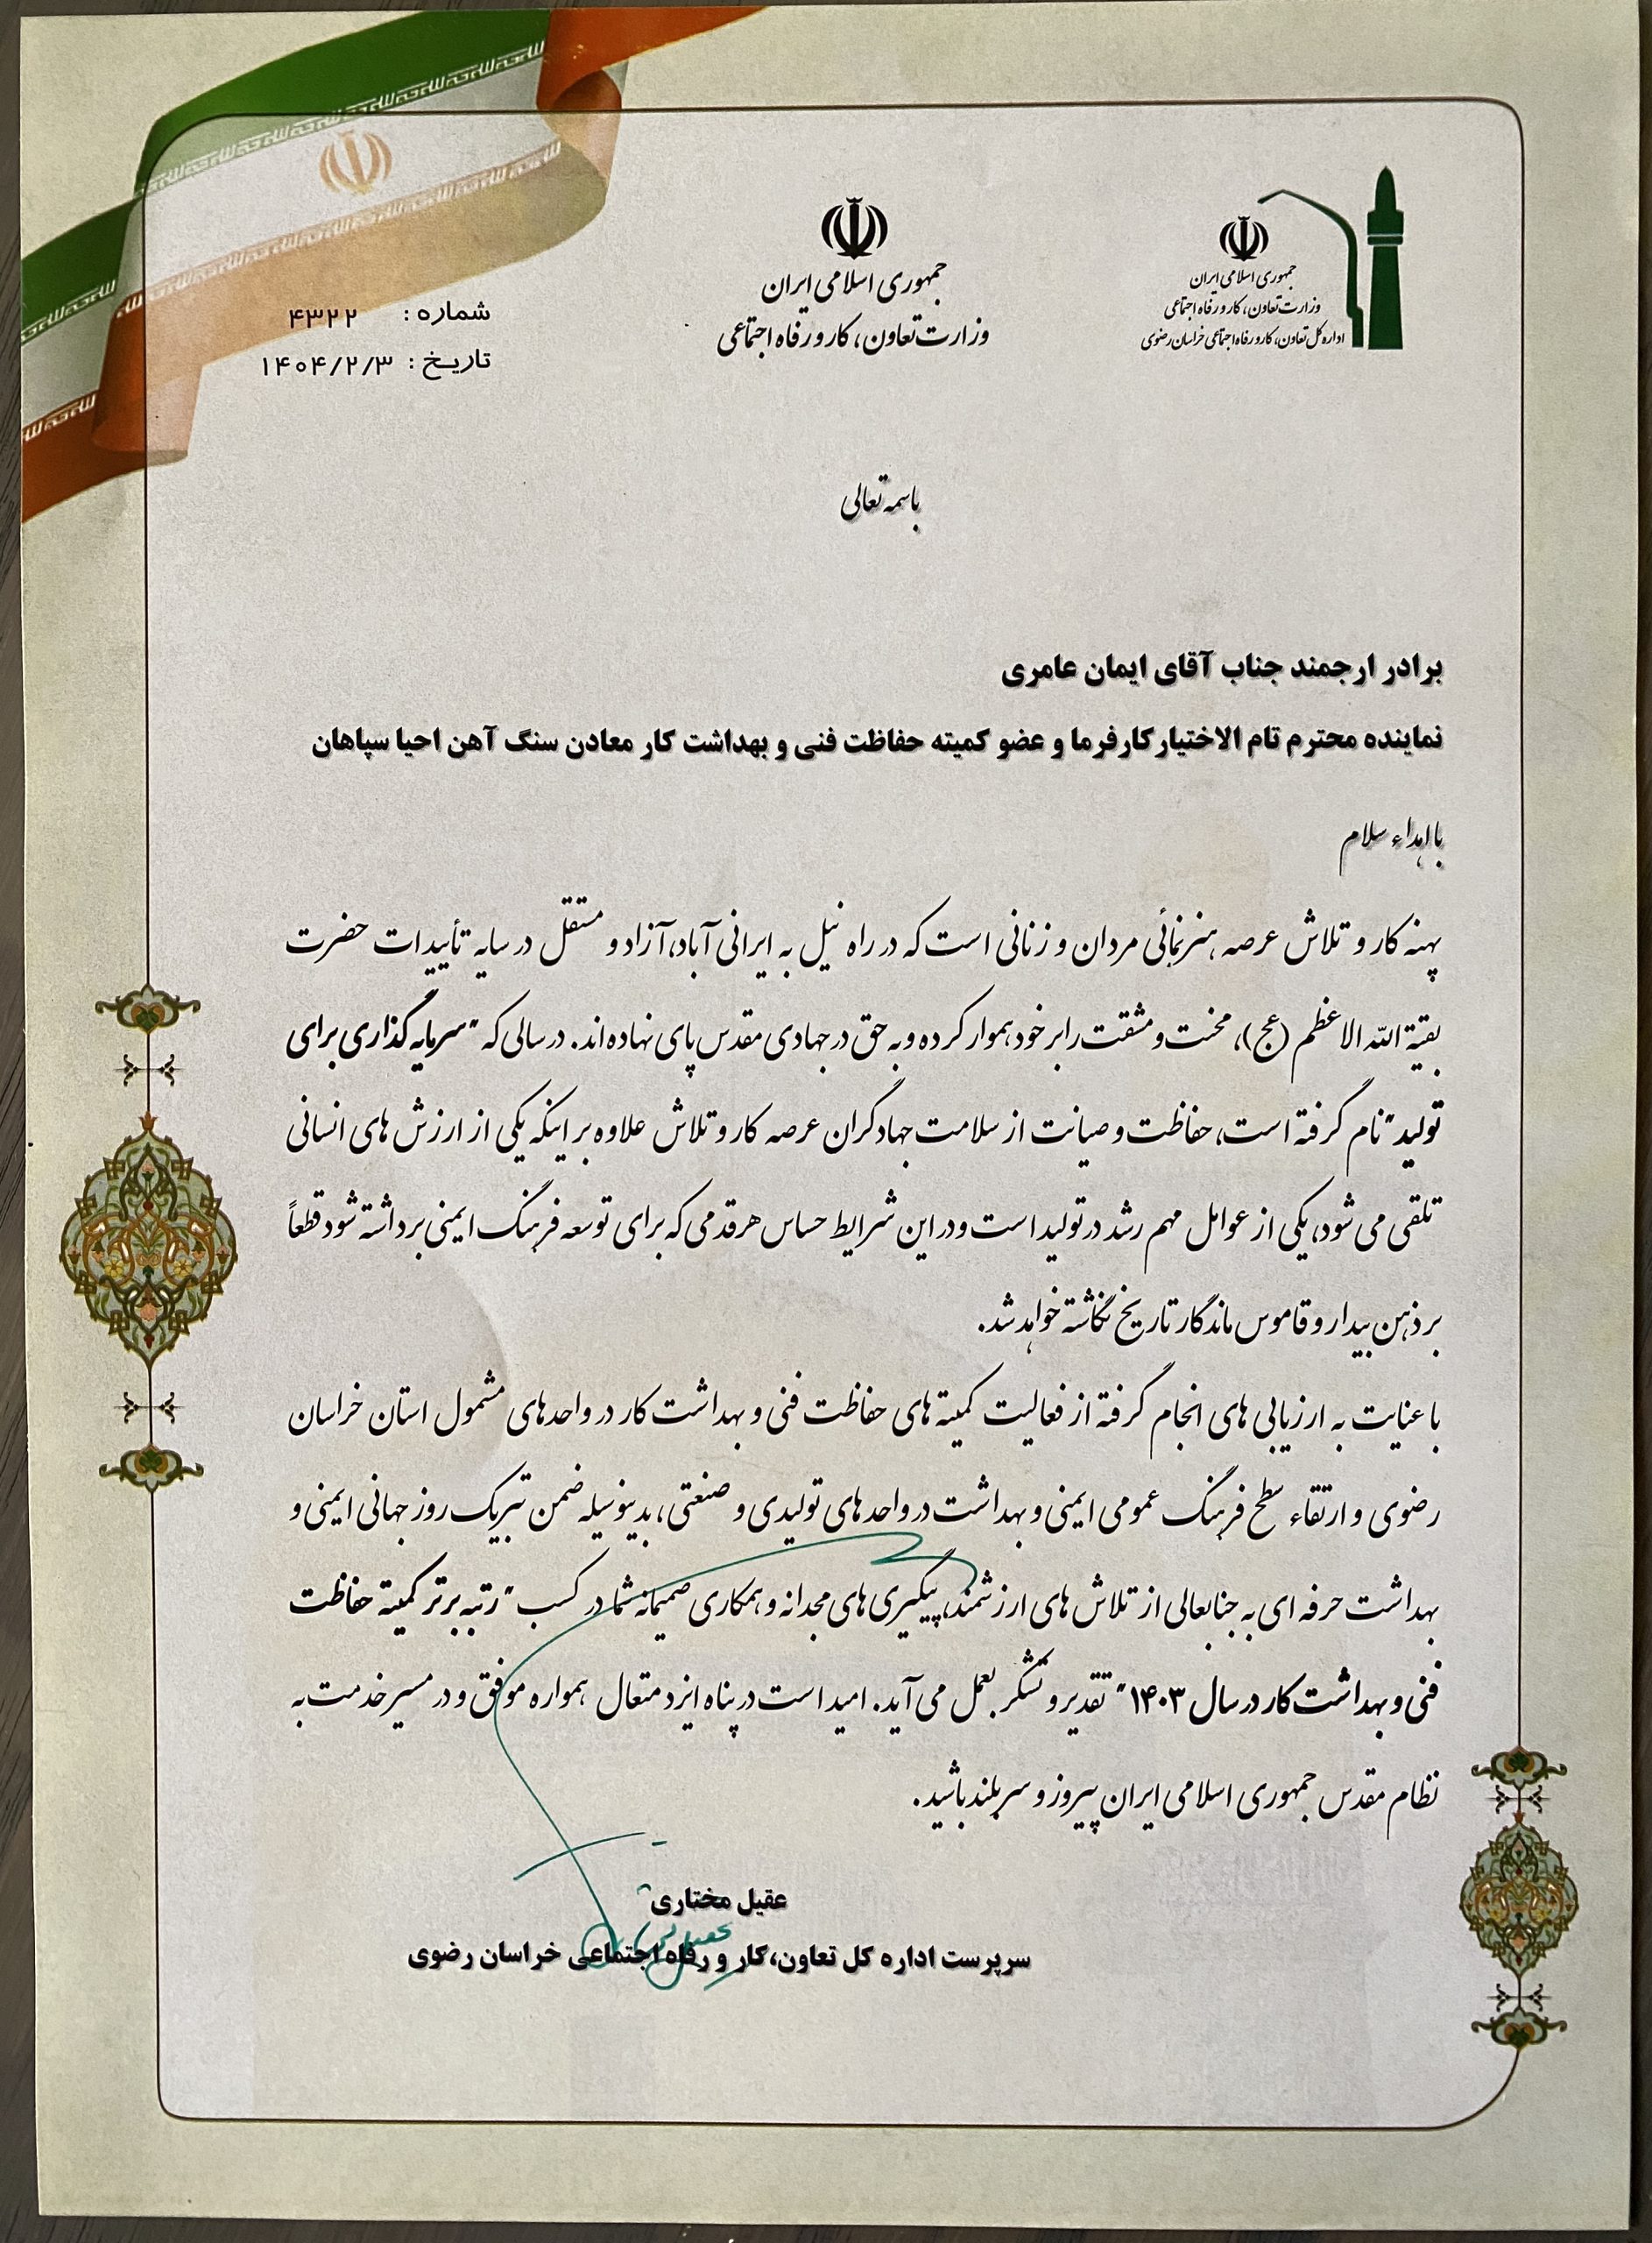 جمهوری اسلامی ایران
وزارت تعاون، کار و رفاه اجتماعی
اداره کل تعاون، کار و رفاه اجتماعی خراسان رضوی
جمهوری اسلامی ایران
وزارت تعاون، کار و رفاه اجتماعی
شماره : ۴۳۲۲
تاریخ : ۱۴۰۴/۲/۳
باسمه تعالی
برادر ارجمند جناب آقای ایمان عامری
نماینده محترم تام الاختیار کارفرما و عضو کمیته حفاظت فنی و بهداشت کار معادن سنگ آهن احیا سپاهان
با اهداء سلام
پهنه کار و تلاش عرصه هنرنمائی مردان و زنانی است که در راه نیل به ایرانی آباد، آزاد و مستقل در سایه تأییدات حضرت
بقیة الله الاعظم (عج)، محنت و مشقت را بر خود هموار کرده و به حق در جهادی مقدس پای نهاده اند. در سالی که "سرمایه گذاری برای
تولید" نام گرفته است، حفاظت و صیانت از سلامت جهادگران عرصه کار و تلاش علاوه بر اینکه یکی از ارزش های انسانی
تلقی می شود، یکی از عوامل مهم رشد در تولید است و در این شرایط حساس هر قدمی که برای توسعه فرهنگ ایمنی برداشته شود قطعاً
بر ذهن بیدار و قاموس ماندگار تاریخ نگاشته خواهد شد.
با عنایت به ارزیابی های انجام گرفته از فعالیت کمیته های حفاظت فنی و بهداشت کار در واحدهای مشمول استان خراسان
رضوی و ارتقاء سطح فرهنگ عمومی ایمنی و بهداشت در واحدهای تولیدی و صنعتی، بدینوسیله ضمن تبریک روز جهانی ایمنی و
بهداشت حرفه ای به جنابعالی از تلاش های ارزشمند، پیگیری های مجدانه و همکاری صمیمانه شما در کسب "رتبه برتر کمیته حفاظت
فنی و بهداشت کار در سال ۱۴۰۳" تقدیر و تشکر بعمل می آید. امید است در پناه ایزد متعال همواره موفق و در مسیر خدمت به
نظام مقدس جمهوری اسلامی ایران پیروز و سربلند باشید.
عقیل مختاری
سرپرست اداره کل تعاون،کار و رفاه اجتماعی خراسان رضوی